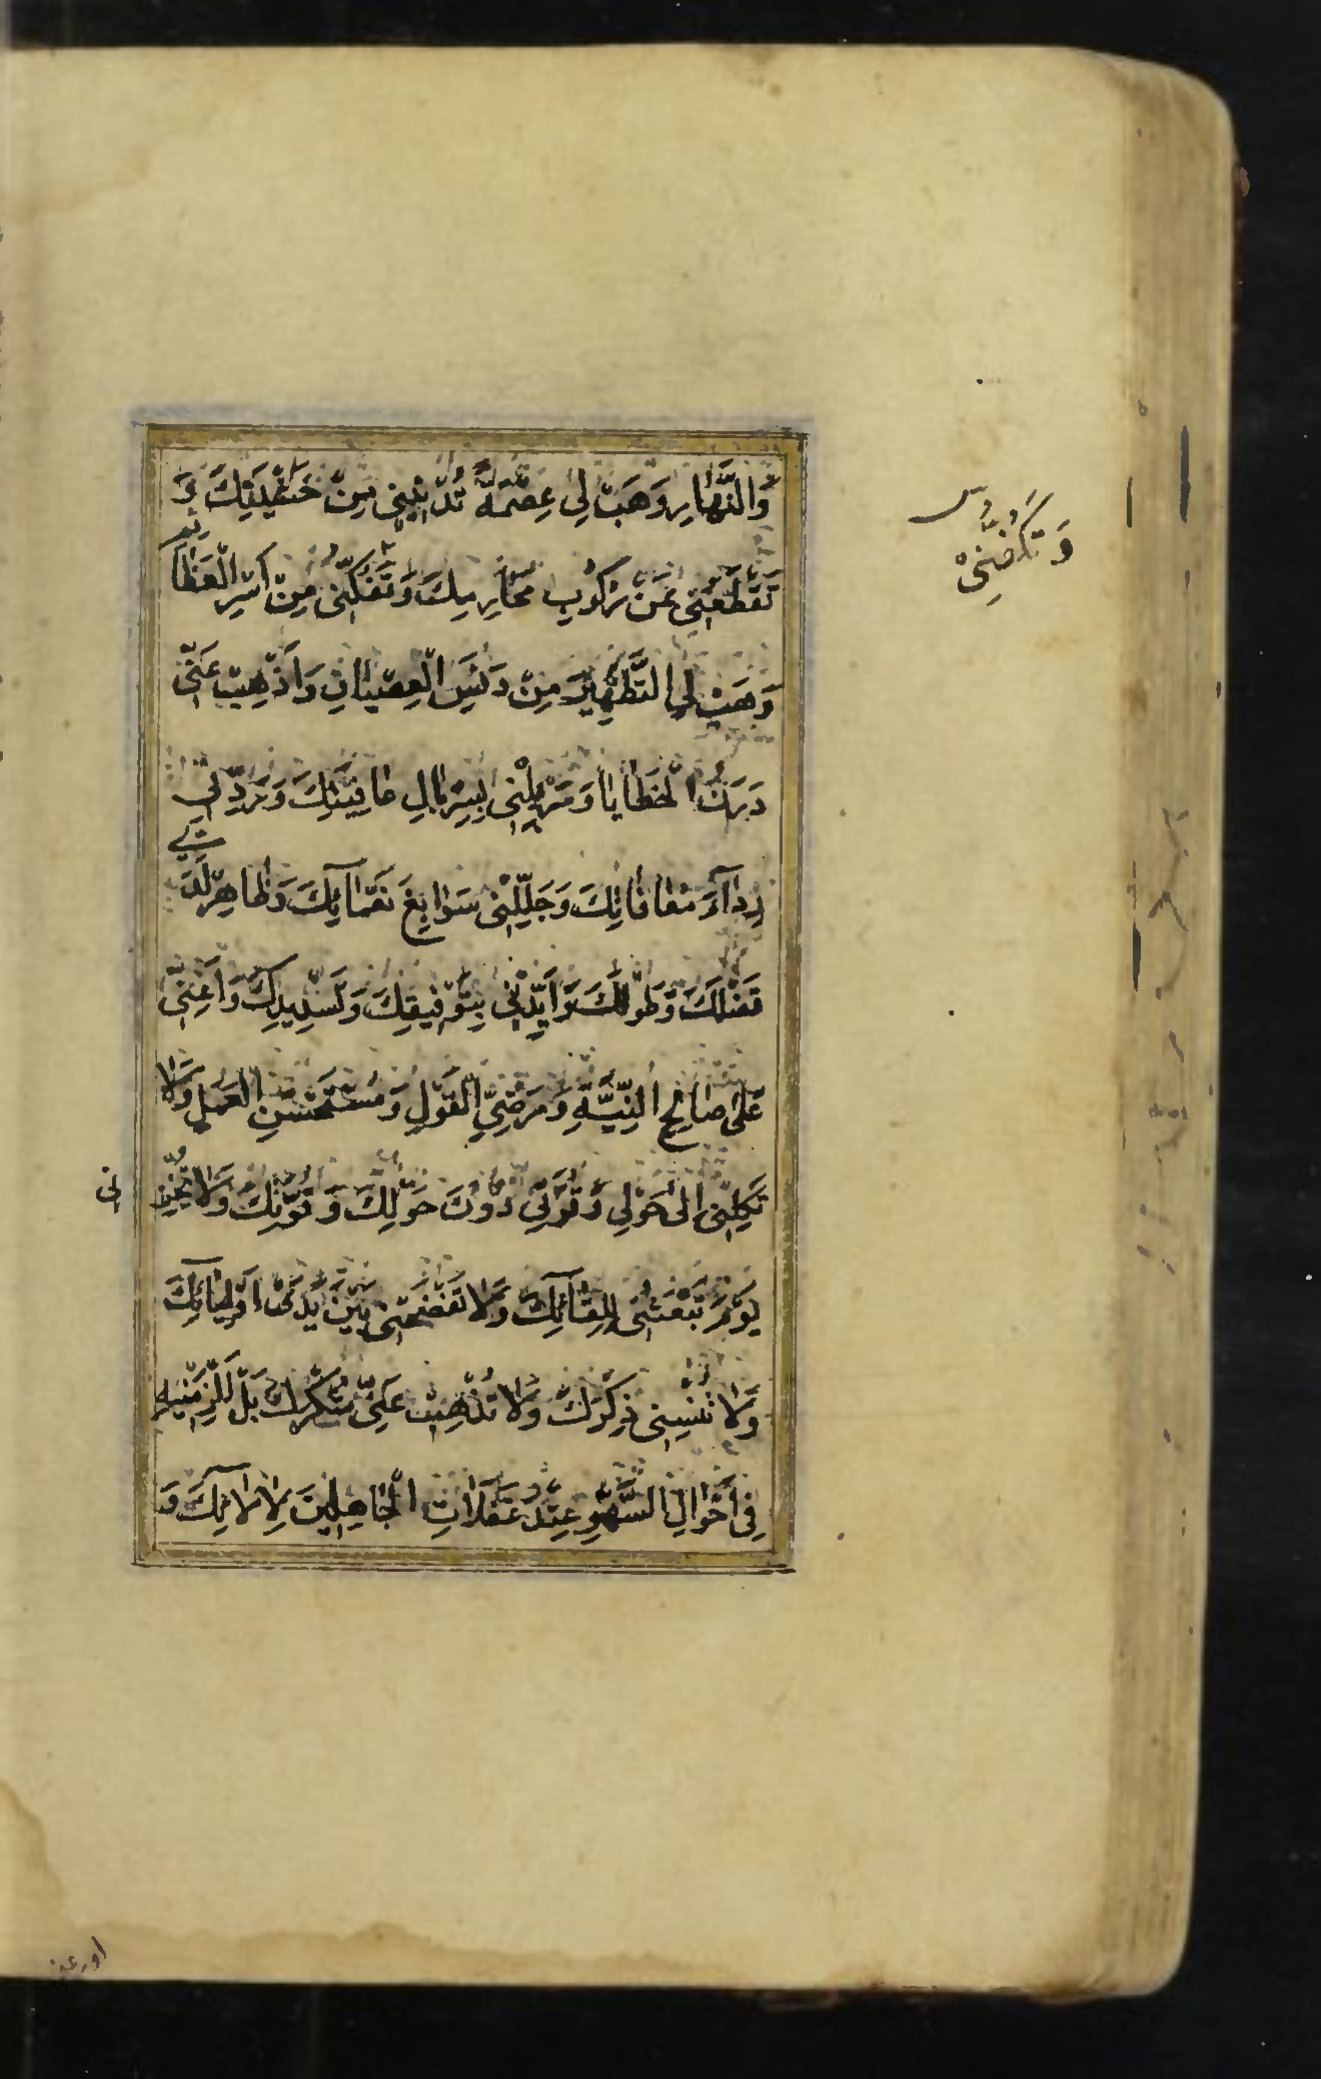 وَالنَّهَارِ وَهَبْ لِي عِصْمَةً تُدْنِينِي مِنْ خَشْيَتِكَ وَ
تَقْطَعُنِي عَنْ رُكُوبِ مَحَارِمِكَ وَتَفُكُّنِي مِنْ أَسْرِ الْعَظَائِمِ
وَهَبْ لِيَ التَّطْهِيرَ مِنْ دَنَسِ الْعِصْيَانِ وَأَذْهِبْ عَنِّي
دَرَنَ الْخَطَايَا وَسَرْبِلْنِي بِسِرْبَالِ عَافِيَتِكَ وَرَدِّنِي
رِدَآءَ مُعَافَاتِكَ وَجَلِّلْنِي سَوَابِغَ نَعْمَائِكَ وَظَاهِرْ لَدَيَّ
فَضْلَكَ وَطَوْلَكَ وَأَيِّدْنِي بِتَوْفِيقِكَ وَتَسْدِيدِكَ وَأَعِنِّي
عَلَى صَالِحِ النِّيَّةِ وَمَرْضِيِّ الْقَوْلِ وَمُسْتَحْسَنِ الْعَمَلِ وَلَا
تَكِلْنِي إِلَى حَوْلِي وَقُوَّتِي دُونَ حَوْلِكَ وَقُوَّتِكَ وَلَا تُخْزِنِي
يَوْمَ تَبْعَثُنِي لِلِقَآئِكَ وَلَا تَفْضَحْنِي بَيْنَ يَدَيْ أَوْلِيَائِكَ
وَلَا تُنْسِنِي ذِكْرَكَ وَلَا تُذْهِبْ عَنِّي شُكْرَكَ بَلْ أَلْزِمْنِيهِ
فِي أَحْوَالِ السَّهْوِ عِنْدَ غَفَلَاتِ الْجَاهِلِينَ لِآلَائِكَ وَ